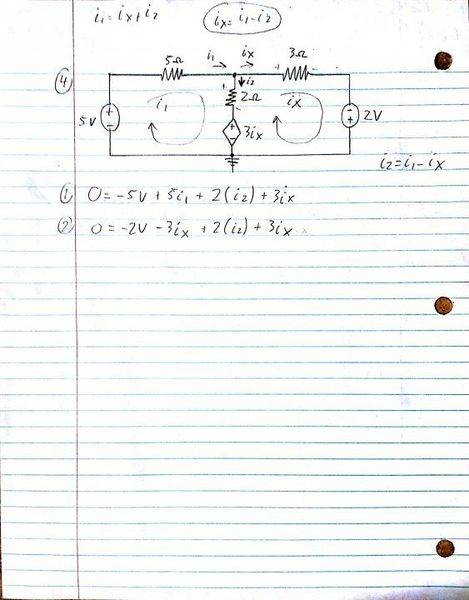 i₁ = ix + i₂
ix = i₁ - i₂
④
5Ω i₁ ix 3Ω
+ -
i₂
+ 2Ω -
i₁ ix
5V + - + - 3ix - + 2V
i₂ = i₁ - ix
① 0 = -5V + 5i₁ + 2(i₂) + 3ix
② 0 = -2V - 3ix + 2(i₂) + 3ix